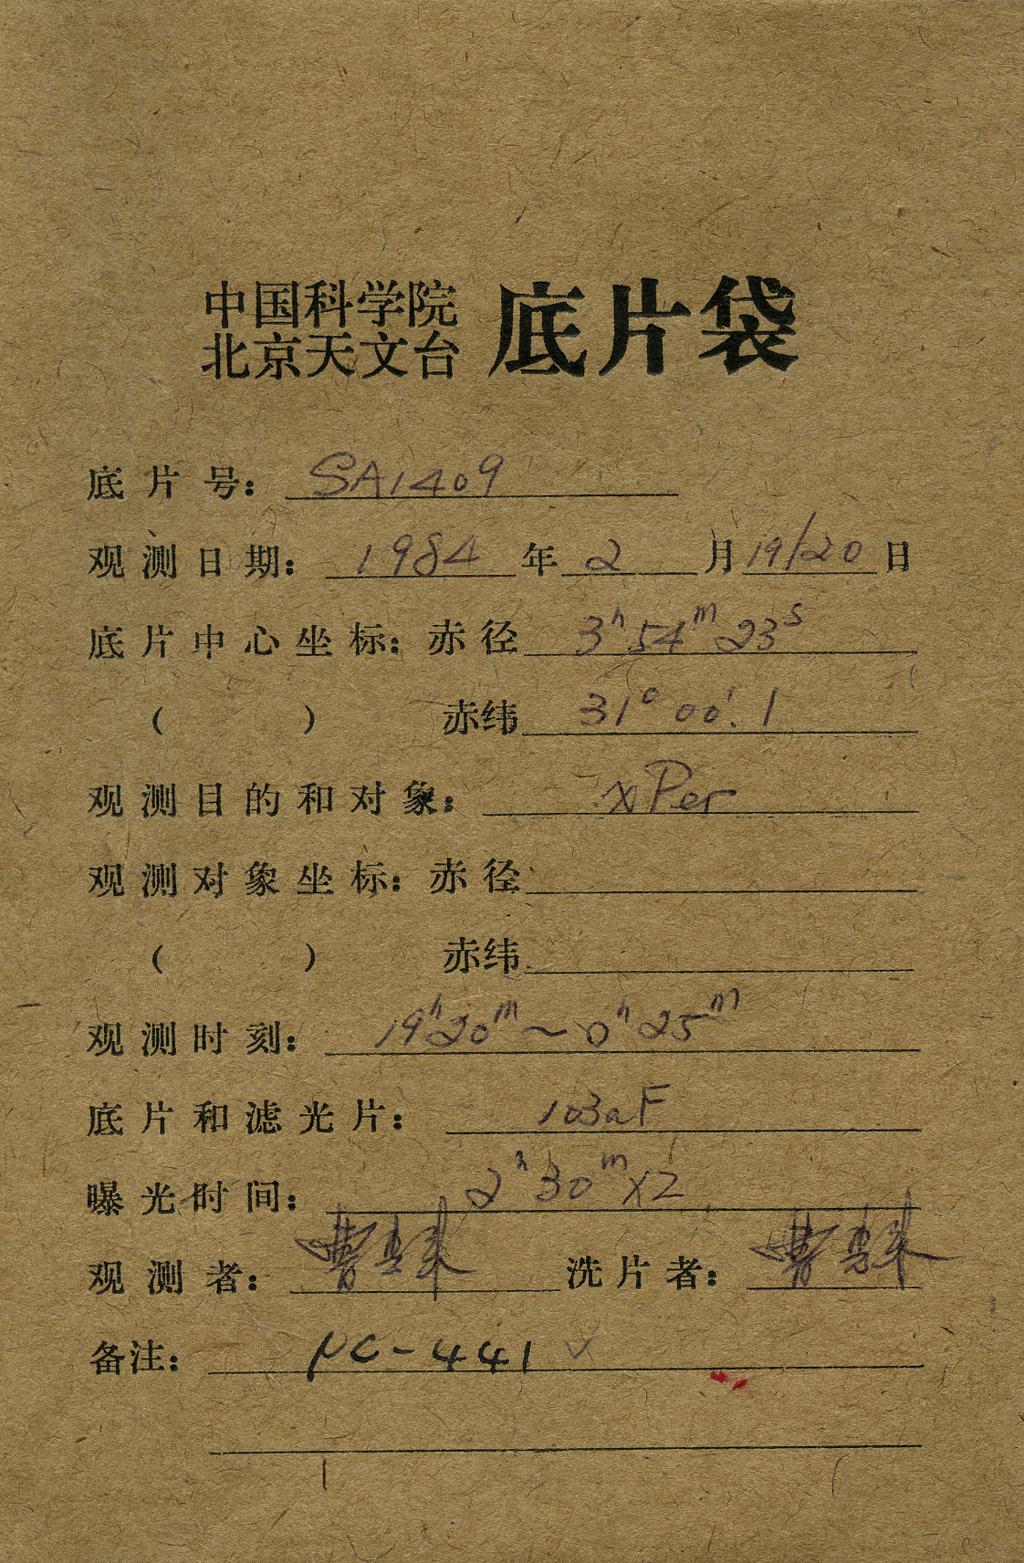 中国科学院
北京天文台 底片袋
底片号: SA1409
观测日期: 1984年2月19/20日
底片中心坐标: 赤径 3ʰ54ᵐ23ˢ
( ) 赤纬 31°00′.1
观测目的和对象: XPer
观测对象坐标: 赤径
( ) 赤纬
观测时刻: 19ʰ20ᵐ~0ʰ25ᵐ
底片和滤光片: 103aF
曝光时间: 2ʰ30ᵐX2
观测者: 洗片者:
备注: NC-441 √